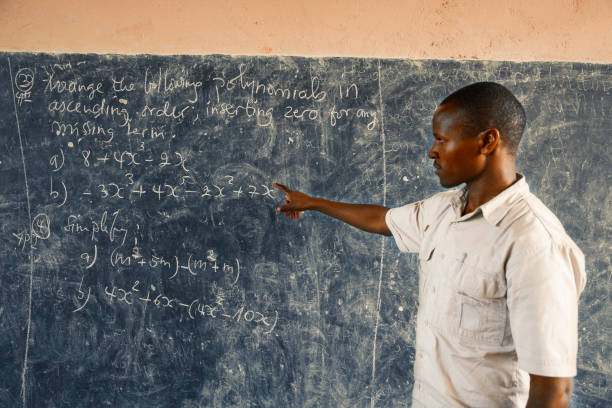 ③ Arrange the following polynomials in
ascending order; inserting zero for any
missing term.
a) 8 + 4x³ - 2x
b) - 3x³ + 4x - 2x² + 7x
④ Simplify
a) (m²+5m)-(m²+m)
b) 4x² + 6x - (4x² - 10x)